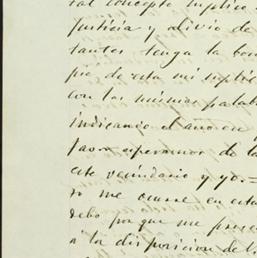 tal concepto suplico
justicia y alivio de
tantes tenga la bon
pié de esta mi suplic
con las mismas palab
indicando el año en
favor esperamos de la
este vecindario y yo.—
se me ocurre en esta
debo porque me prese
a la disposicion de V.